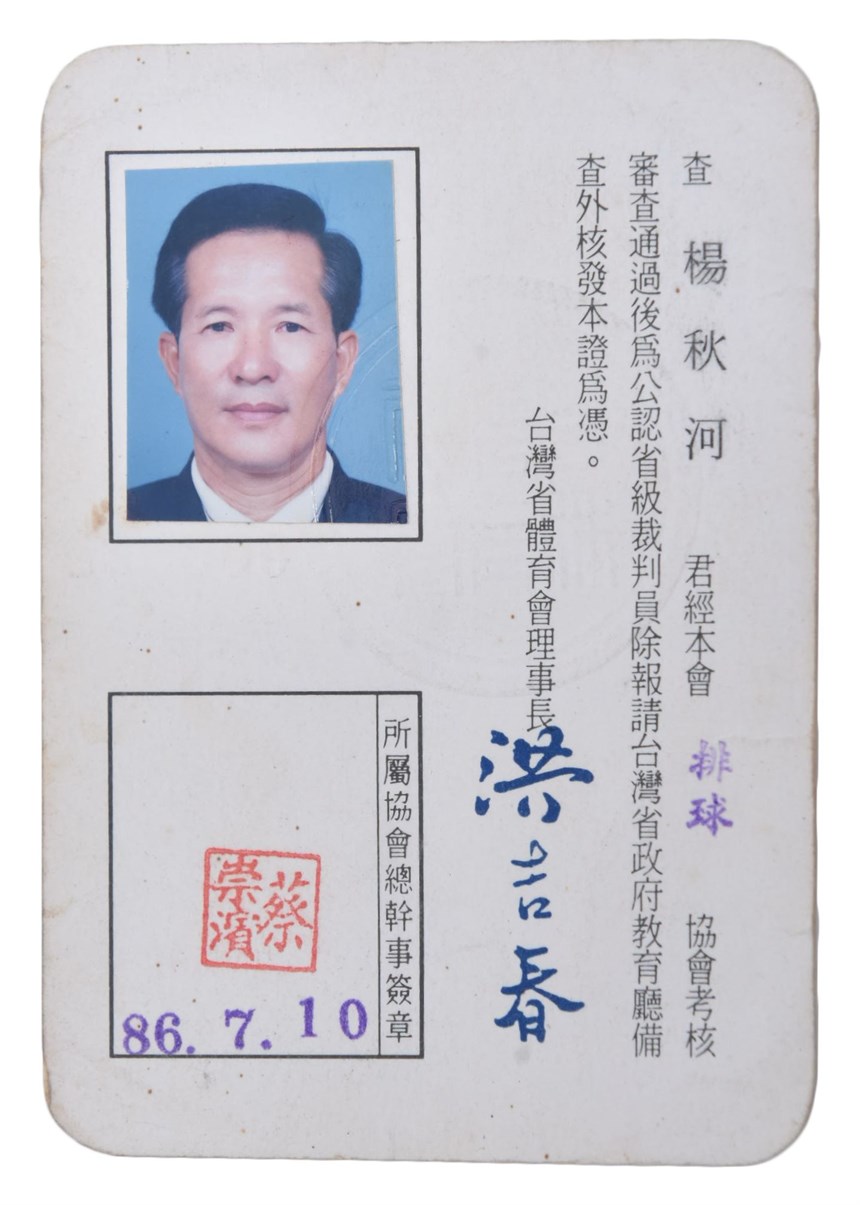 查 楊秋河 君經本會 排球 協會考核
審查通過後爲公認省級裁判員除報請台灣省政府教育廳備
查外核發本證爲憑。
台灣省體育會理事長 洪吉春
所屬協會總幹事簽章
蔡崇濱
86. 7. 10